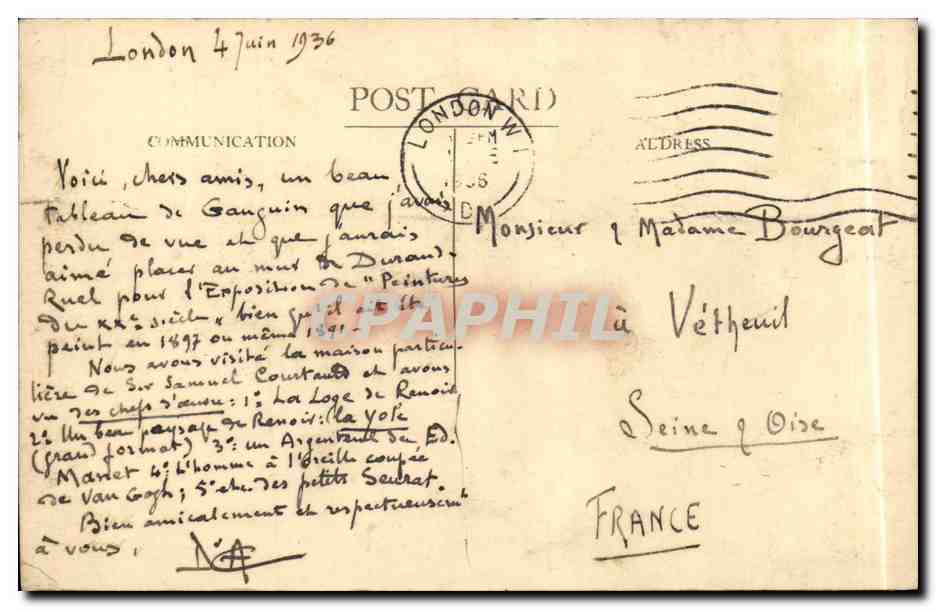 London 4 Juin 1936
POST CARD
COMMUNICATION
ADDRESS
LONDON W1
Voici, chers amis, un beau
tableau de Gauguin que j'avais
perdu de vue et que j'aurais
aimé placer au mur de Durand-
Ruel pour l'Exposition de "Peintures
du XXe siècle" bien qu'il ait été
peint en 1897 ou même 1891-
Nous avons visité la maison particu-
lière de Sir Samuel Courtauld et avons
vu des chefs d'œuvre : 1° La Loge de Renoir,
2° Un beau paysage de Renoir : la yole
(grand format) 3° un Argenteuil de Ed.
Manet 4° L'homme à l'oreille coupée
de Van Gogh ; 5° etc. des petits Seurat.
Bien amicalement et respectueusemt
à vous,
Monsieur & Madame Bourgeat
à Vétheuil
Seine & Oise
FRANCE
CPAPHIL